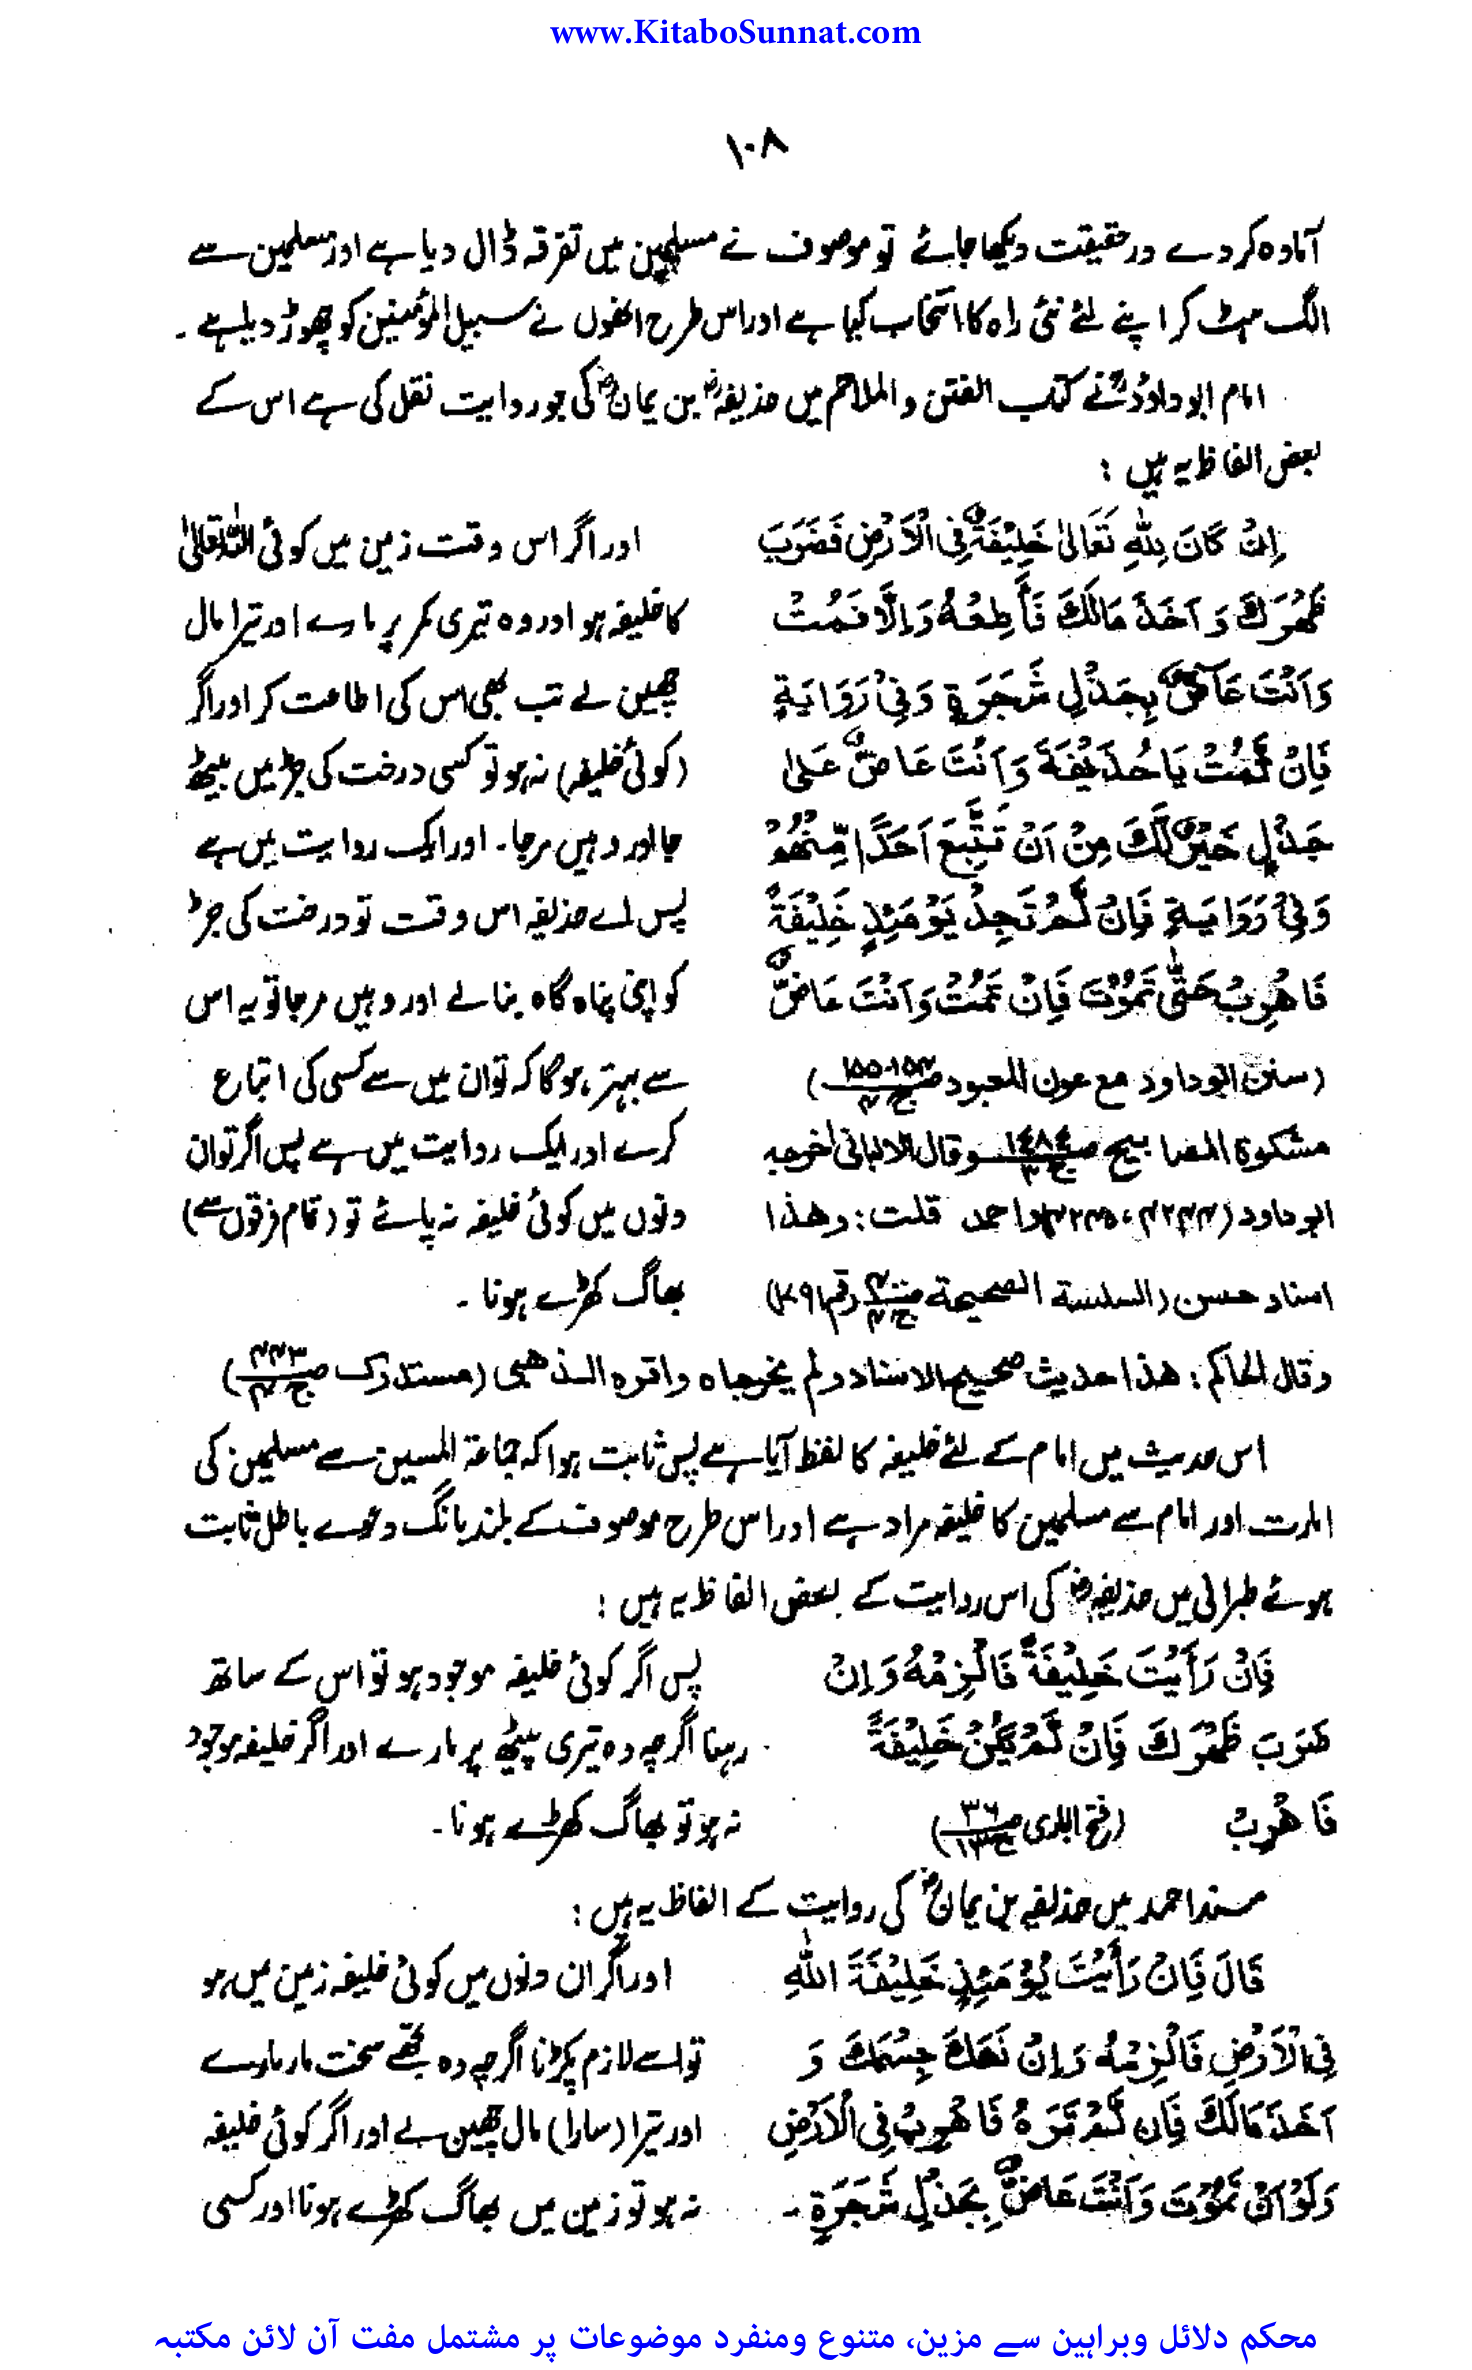 www.KitaboSunnat.com
۱۰۸
آمادہ کردے درحقیقت دیکھا جائے تو موصوف نے مسلمین میں تفرقہ ڈال دیا ہے اور مسلمین سے
الگ ہٹ کر اپنے لئے نئی راہ کا انتخاب کیا ہے اور اس طرح انھوں نے سبیل المؤمنین کو چھوڑ دیا ہے ۔
امام ابوداودؒ نے کتاب الفتن والملاحم میں حذیفہؓ بن یمانؓ کی جو روایت نقل کی ہے اس کے
بعض الفاظ یہ ہیں :
اِنْ كَانَ لِلّٰهِ تَعَالىٰ خَلِيْفَةٌ فِى الْاَرْضِ فَضَرَبَ
ظَهْرَكَ وَ اَخَذَ مَالَكَ فَأَطِعْهُ وَاِلَّا فَمُتْ
وَاَنْتَ عَاضٌّ بِجَذْلِ شَجَرَةٍ وَفِىْ رَوَايَةٍ
فَاِنْ تَمُتْ يَا حُذَيْفَةَ وَاَنْتَ عَاضٌّ عَلىٰ
جَذْلٍ خَيْرٌ لَّكَ مِنْ اَنْ تَتَّبِعَ اَحَدًا مِّنْهُمْ
وَفِىْ رَوَايَةٍ فَاِنْ لَّمْ تَجِدْ يَوْمَئِذٍ خَلِيْفَةً
فَاهْرِبْ حَتّٰى تَمُوْتَ فَاِنْ تَمُتْ وَاَنْتَ عَاضٌّ
(سنن ابوداود مع عون المعبود ص ۱۵۴۔۱۵۵ ج ۴)
مشکوۃ المصابیح ص ۱۴۸۴ ج ۳ وقال الالبانی اخرجہ
ابوداود (۴۲۴۴، ۴۲۴۵) واحمد قلت : وھذا
اسناد حسن (السلسة الصحیحة ج ۴ رقم ۱۷۹۱)
اور اگر اس وقت زمین میں کوئی اللہ تعالیٰ
کا خلیفہ ہو اور وہ تیری کمر پر مارے اور تیرا مال
چھین لے تب بھی اس کی اطاعت کر اور اگر
(کوئی خلیفہ) نہ ہو تو کسی درخت کی جڑ میں بیٹھ
جا اور وہیں مرجا۔ اور ایک روایت میں ہے
پس اے حذیفہ اس وقت تو درخت کی جڑ
کو اپنی پناہ گاہ بنالے اور وہیں مرجا تو یہ اس
سے بہتر ہوگا کہ تو ان میں سے کسی کی اتباع
کرے اور ایک روایت میں ہے پس اگر تو ان
دنوں میں کوئی خلیفہ نہ پائے تو (تمام فرقوں سے)
بھاگ کھڑے ہونا ۔
وقال الحاکم : ھذا حدیث صحیح الاسناد ولم یخرجاہ واقرہ الذھبی (مستدرک ص ۴۴۳ ج ۴)
اس حدیث میں امام کے لئے خلیفہ کا لفظ آیا ہے پس ثابت ہوا کہ جماعة المسلمین سے مسلمین کی
امارت اور امام سے مسلمین کا خلیفہ مراد ہے اور اس طرح موصوف کے بلند بانگ دعوے باطل ثابت
ہوئے طبرانی میں حذیفہؓ کی اس روایت کے بعض الفاظ یہ ہیں :
فَاِنْ رَأَيْتَ خَلِيْفَةً فَالْزِمْهُ وَاِنْ
ضَرَبَ ظَهْرَكَ فَاِنْ لَّمْ يَكُنْ خَلِيْفَةً
فَاهْرِبْ (فتح الباری ص ۳۶ ج ۱۳)
پس اگر کوئی خلیفہ موجود ہو تو اس کے ساتھ
رہنا اگرچہ وہ تیری پیٹھ پر مارے اور اگر خلیفہ موجود
نہ ہو تو بھاگ کھڑے ہونا۔
مسند احمد میں حذیفہ بن یمانؓ کی روایت کے الفاظ یہ ہیں :
قَالَ فَاِنْ رَأَيْتَ يَوْمَئِذٍ خَلِيْفَةَ اللّٰهِ
فِى الْاَرْضِ فَالْزِمْهُ وَاِنْ نَهَكَ جِسْمَكَ وَ
اَخَذَ مَالَكَ فَاِن لَّمْ تَرَهُ فَاهْرِبْ فِى الْاَرْضِ
وَلَوْ اَنْ تَمُوْتَ وَاَنْتَ عَاضٌّ بِجَذْلِ شَجَرَةٍ ۔
اور اگر ان دنوں میں کوئی خلیفہ زمین میں ہو
تو اسے لازم پکڑنا اگرچہ وہ تجھے سخت مار مارے
اور تیرا (سارا) مال چھین لے اور اگر کوئی خلیفہ
نہ ہو تو زمین میں بھاگ کھڑے ہونا اور کسی
محکم دلائل وبراہین سے مزین، متنوع ومنفرد موضوعات پر مشتمل مفت آن لائن مکتبہ